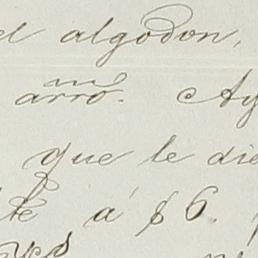 el algodon,
arro. Ay
que le die
te á $6.